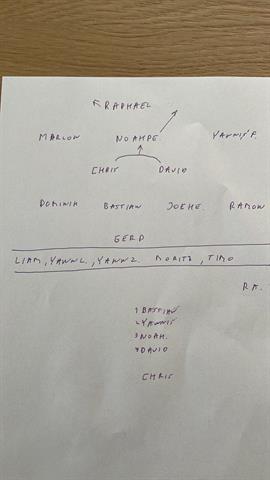 RAPHAEL
MARLON NOAH PE. YANNIS P.
CHRIS DAVID
DOMINIK BASTIAN JOEHE. RAMON
GERD
LIAM, YANN L., YANN Z. MORITZ, TIMO
RA.
1 BASTIAN
2 YANNIS
3 NOAH.
4 DAVID
CHRIS